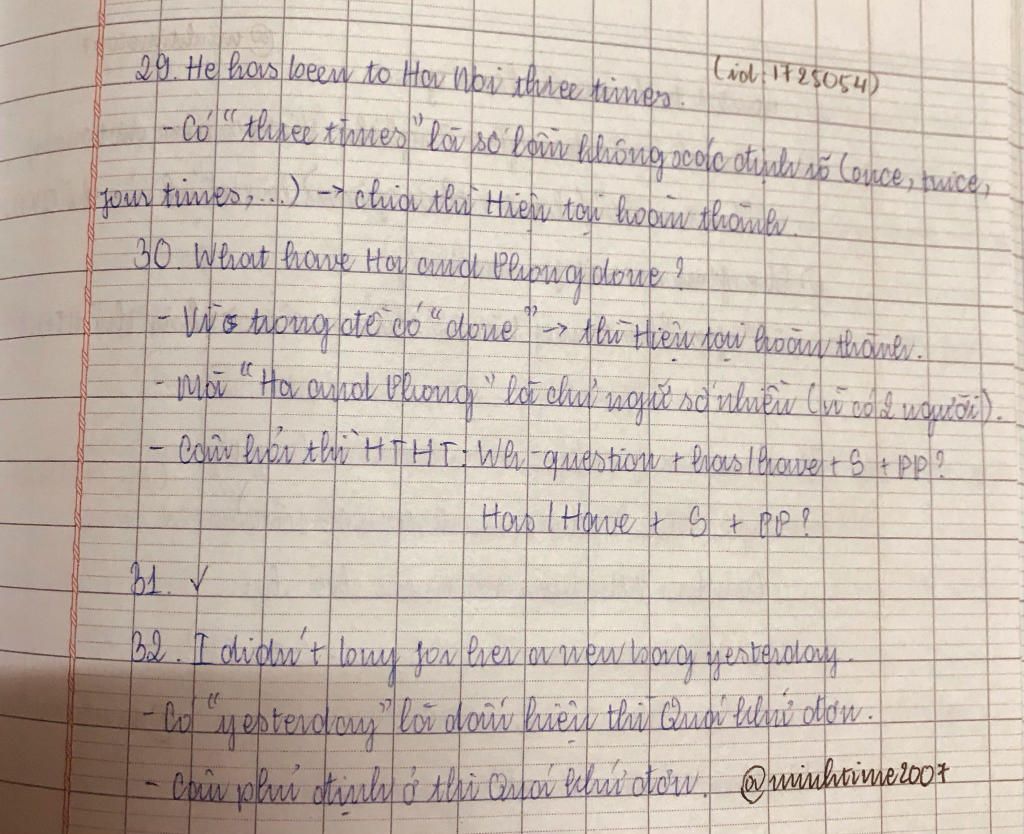 29. He has been to Ha Noi three times. (id: 1725054)
- Có "three times" là số lần không xác định rõ (once, twice,
four times,...) → chia thì Hiện tại hoàn thành.
30. What have Ha and Phong done?
- Vì trong đề có "done" → thì Hiện tại hoàn thành.
- Mà "Ha and Phong" là chủ ngữ số nhiều (vì có 2 người).
- Câu hỏi thì HTHT: Wh-question + has/have + S + PP?
Has/Have + S + PP?
31. ✓
32. I didn't buy for her a new bag yesterday.
- Có "yesterday" là dấu hiệu thì Quá khứ đơn.
- Câu phủ định ở thì Quá khứ đơn. @minhtime2007